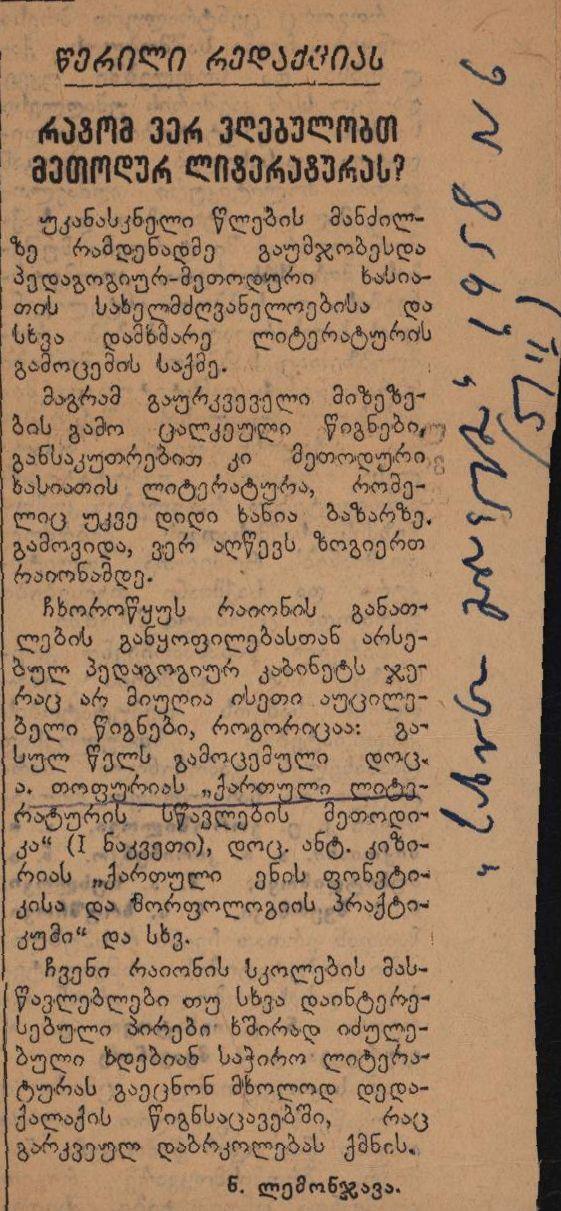 წერილი რედაქციას
რატომ ვერ ვღებულობთ
მეთოდურ ლიტერატურას?
უკანასკნელი წლების მანძილ-
ზე რამდენადმე გაუმჯობესდა
პედაგოგიურ-მეთოდური ხასია-
თის სახელმძღვანელოებისა და
სხვა დამხმარე ლიტერატურის
გამოცემის საქმე.
მაგრამ გაურკვეველი მიზეზე-
ბის გამო ცალკეული წიგნები,
განსაკუთრებით კი მეთოდური
ხასიათის ლიტერატურა, რომე-
ლიც უკვე დიდი ხანია ბაზარზე
გამოვიდა, ვერ აღწევს ზოგიერთ
რაიონამდე.
ჩხოროწყუს რაიონის განათ-
ლების განყოფილებასთან არსე-
ბულ პედაგოგიურ კაბინეტს ჯე-
რაც არ მიუღია ისეთი აუცილე-
ბელი წიგნები, როგორიცაა: გა-
სულ წელს გამოცემული დოც.
ა. თოფურიას „ქართული ლიტე-
რატურის სწავლების მეთოდი-
კა“ (I ნაკვეთი), დოც. ანტ. კიზი-
რიას „ქართული ენის ფონეტი-
კისა და მორფოლოგიის პრაქტი-
კუმი“ და სხვ.
ჩვენი რაიონის სკოლების მას-
წავლებლები თუ სხვა დაინტერე-
სებული პირები ხშირად იძულე-
ბული ხდებიან საჭირო ლიტერა-
ტურას გაეცნონ მხოლოდ დედა-
ქალაქის წიგნსაცავებში, რაც
გარკვეულ დაბრკოლებას ქმნის.
ნ. ლემონჯავა.